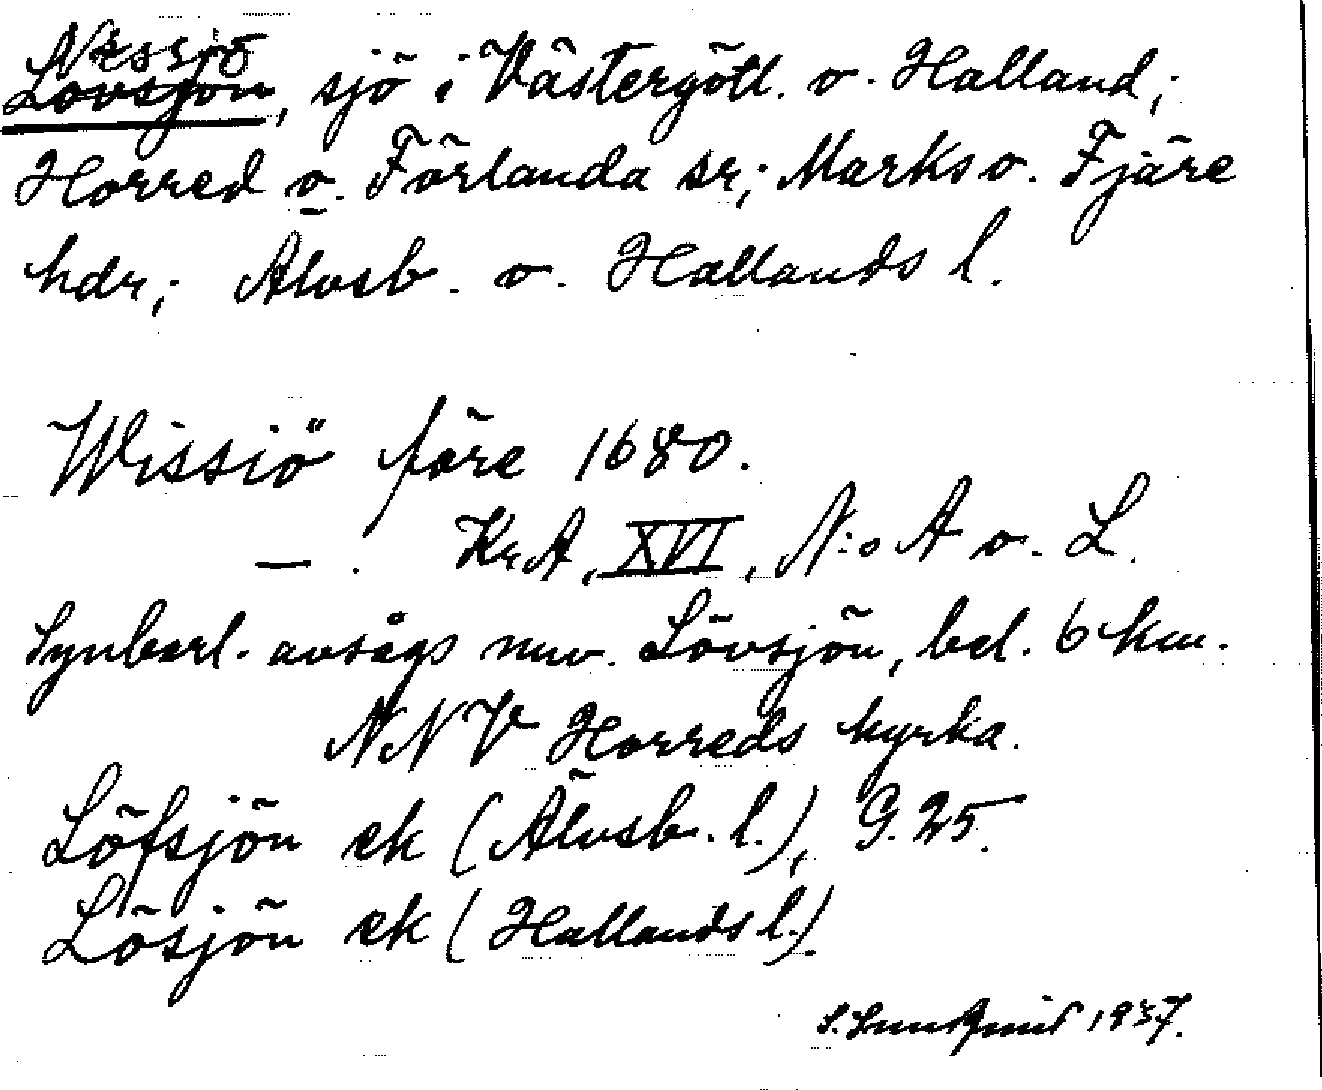 Nessjö
Lövsjön, sjö i Västergötl. o. Halland;
Horred o. Förlanda sr; Marks o. Fjäre
hdr; Älvsb. o. Hallands l.
Wissiö före 1680.
— . KrA, XVI, N:o A o. L.
Synbarl. avsågs nuv. Lövsjön, bel. 6 km.
NNV Horreds kyrka.
Löfsjön ek (Älvsb. l.), G. 25.
Lösjön ek (Hallands l.)
S. Lundqvist 1937.